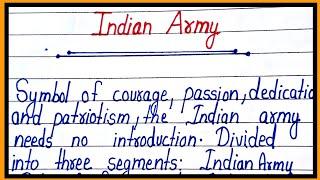 Indian Army
Symbol of courage, passion, dedicatio
and patriotism, the Indian army
needs no introduction. Divided
into three segments; Indian Army